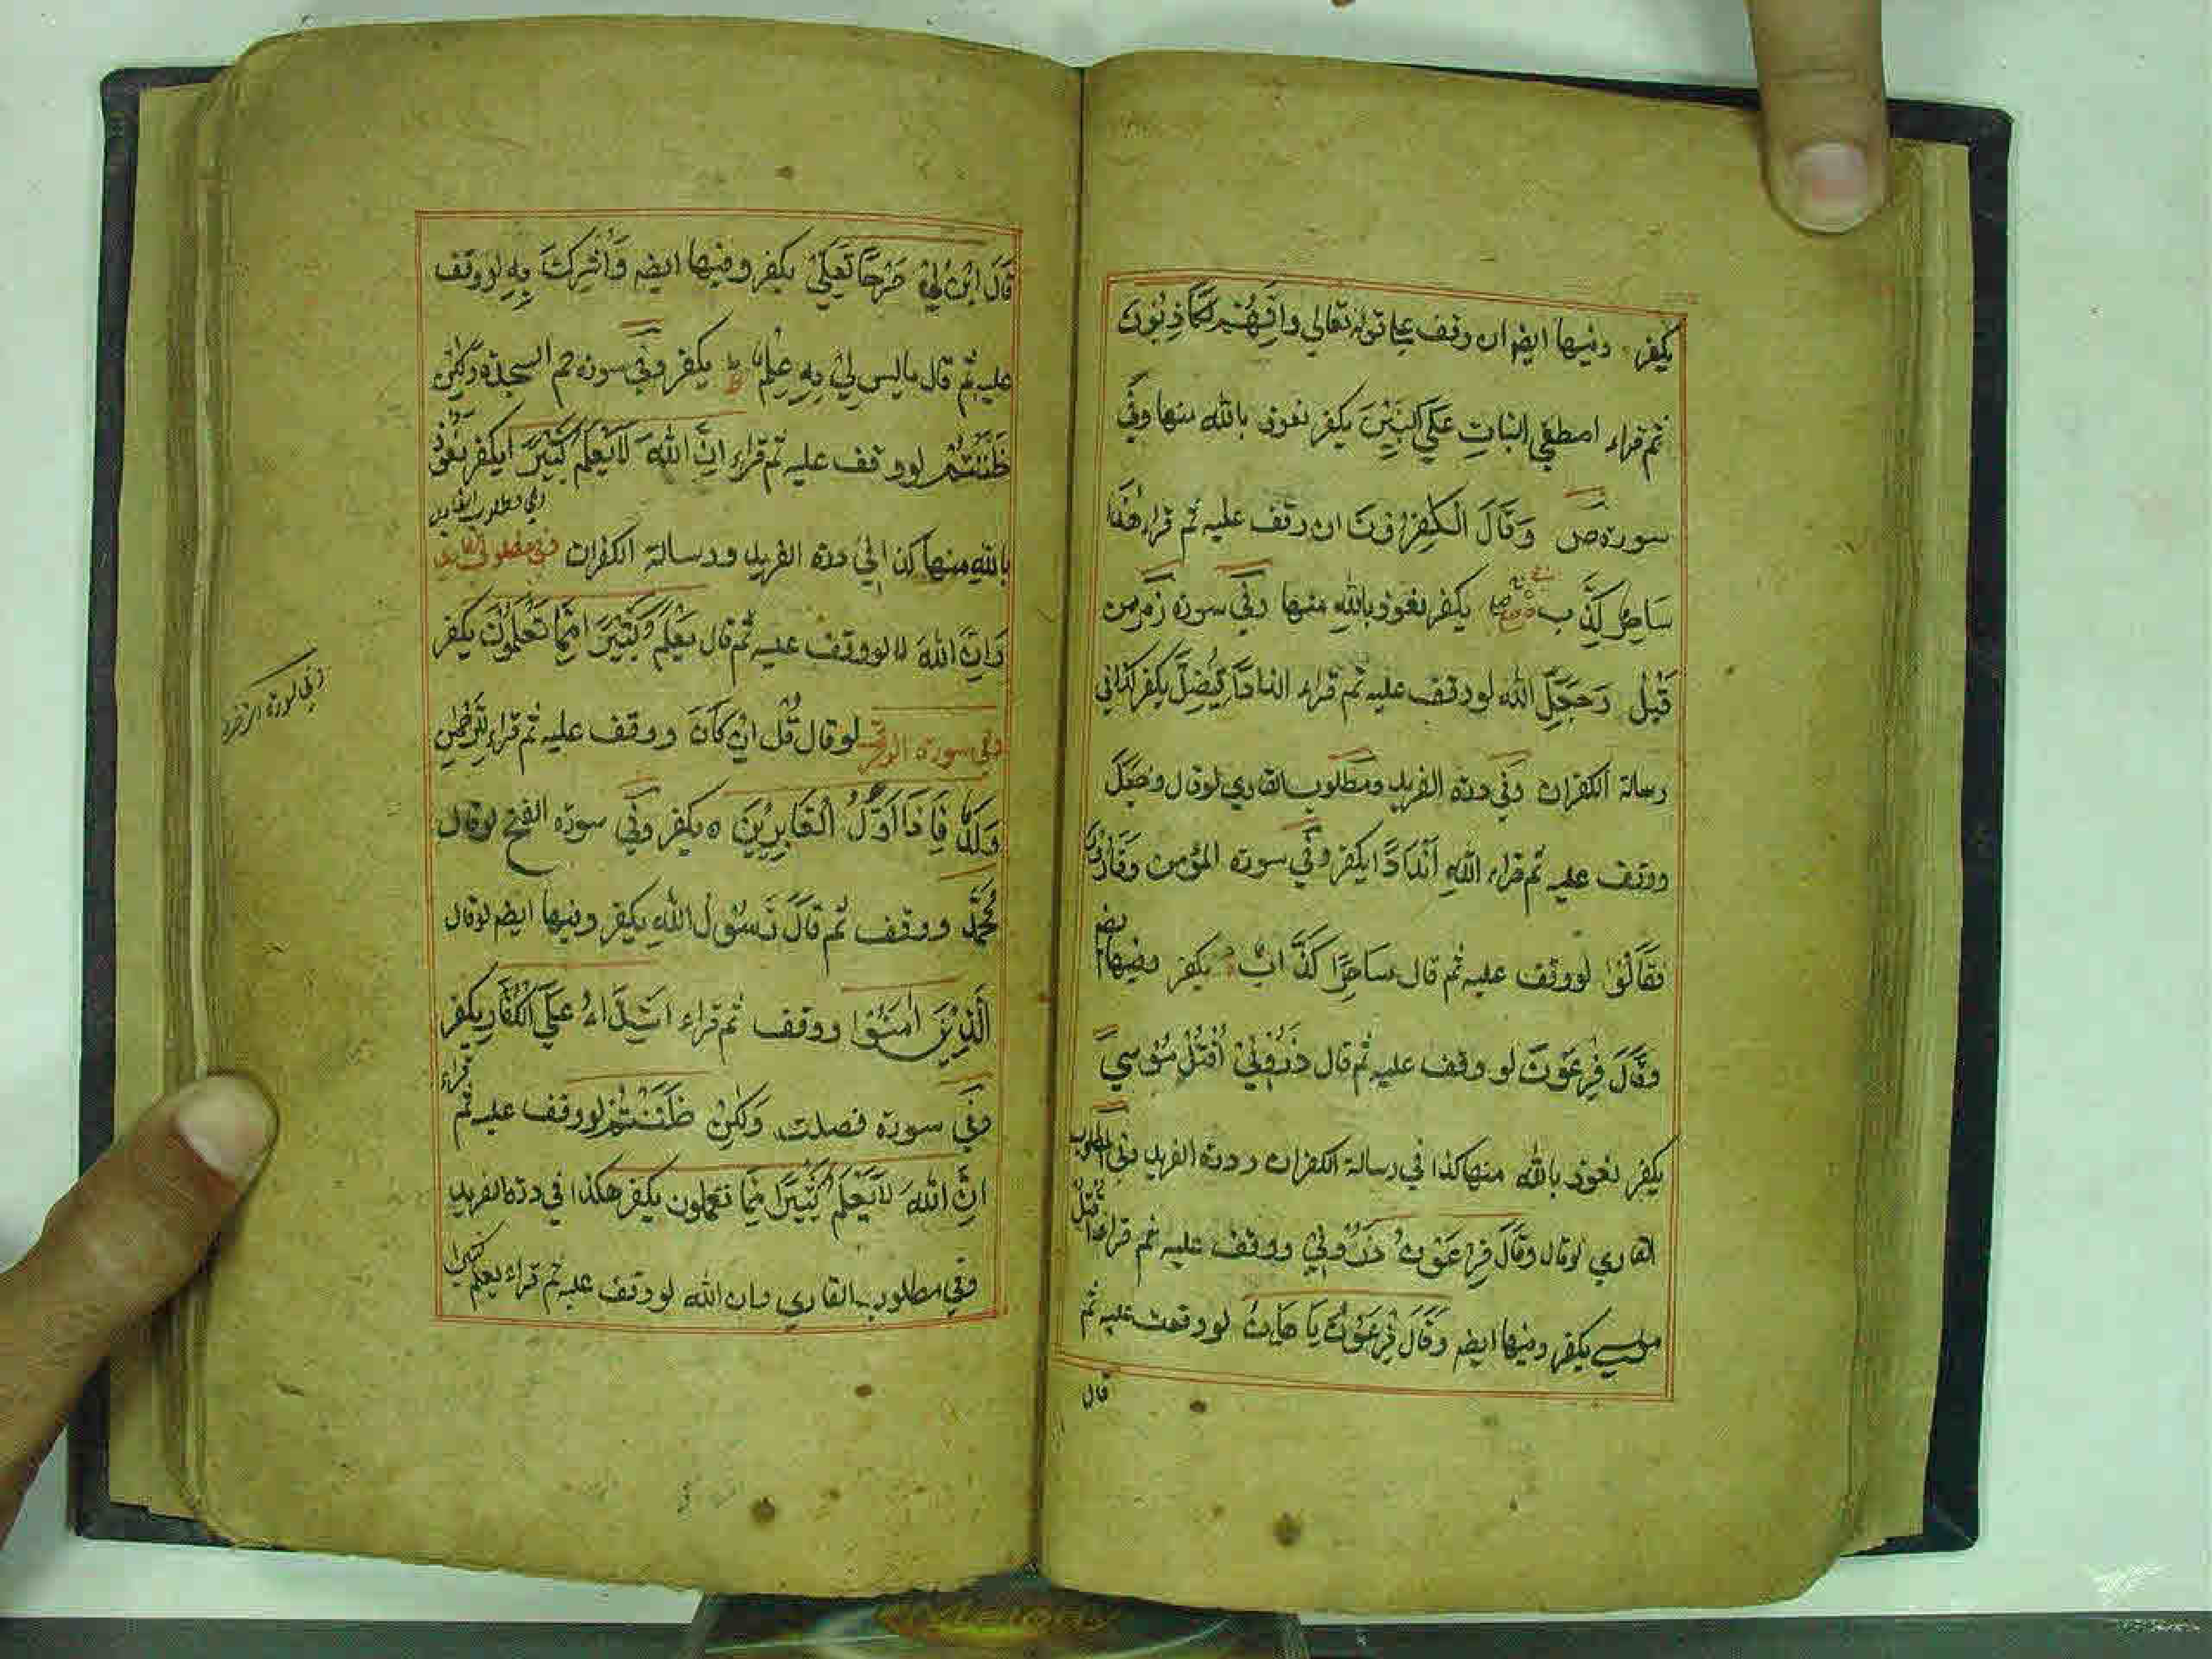 يكفر وفيها ايضم ان وقف على قوله تعالي وانهم لكاذبون
ثم قراء اصطفي البنات على البنين يكفر نعوذ بالله منها وفي
سورة ص وقال الكفرون ان وقف عليه ثم قراء هذا
ساحر كذب يكفر نعوذ بالله منها وفي سورة زمر من
قبل وجعل الله لو وقف عليه ثم قراء انداداً ليضل يكفر كذا في
رسالة الكفران وفي درة الفريد ومطلوب القاري لو قال وجعل
ووقف عليه ثم قراء لله أنداداً يكفر وفي سورة المؤمن وقارون
فقالوا لو وقف عليه ثم قال ساحرًا كذاب يكفر وفيها ايضم
وقال فرعون لو وقف عليه ثم قال ذروني اقتل موسي
يكفر نعوذ بالله منها كذا في رسالة الكفران ودرة الفريد وفي مطلوب
القاري لو قال وقال فرعون ذروني ووقف عليه ثم قراء اقتل
موسي يكفر وفيها ايضم وقال فرعون يا هامان لو وقف عليه ثم
قال
قال ابن لي صرحا تعلي يكفر وفيها ايضم وأشرك به لو وقف
عليه ثم قال ما ليس لي به علم يكفر وفي سورة حم السجدة ولكن
ظننتم لو وقف عليه ثم قراء ان الله لا يعلم كثيرًا يكفر نعوذ
وفي مطلوب القاري
بالله منها كذا في درة الفريد ورسالة الكفران وفي مطلوب القاري
وان الله لا لو وقف عليه ثم قال يعلم كثيرًا مما تعملون يكفر
وفي سورة الزخرف لو قال قل ان كان ووقف عليه ثم قراء للرحمن
وفي سورة الزخرف
ولد فانا اول العابدين ه يكفر وفي سورة الفتح لو قال
محمد ووقف ثم قال رسول الله يكفر وفيها ايضم لو قال
الذين امنوا ووقف ثم قراء اشداء على الكفار يكفر
وفي سورة فصلت ولكن ظننتم لو وقف عليه ثم قراء
ان الله لا يعلم كثيرا مما تعملون يكفر هكذا في درة الفريد
وفي مطلوب القاري وان الله لو وقف عليه ثم قراء يعلم كثيرا